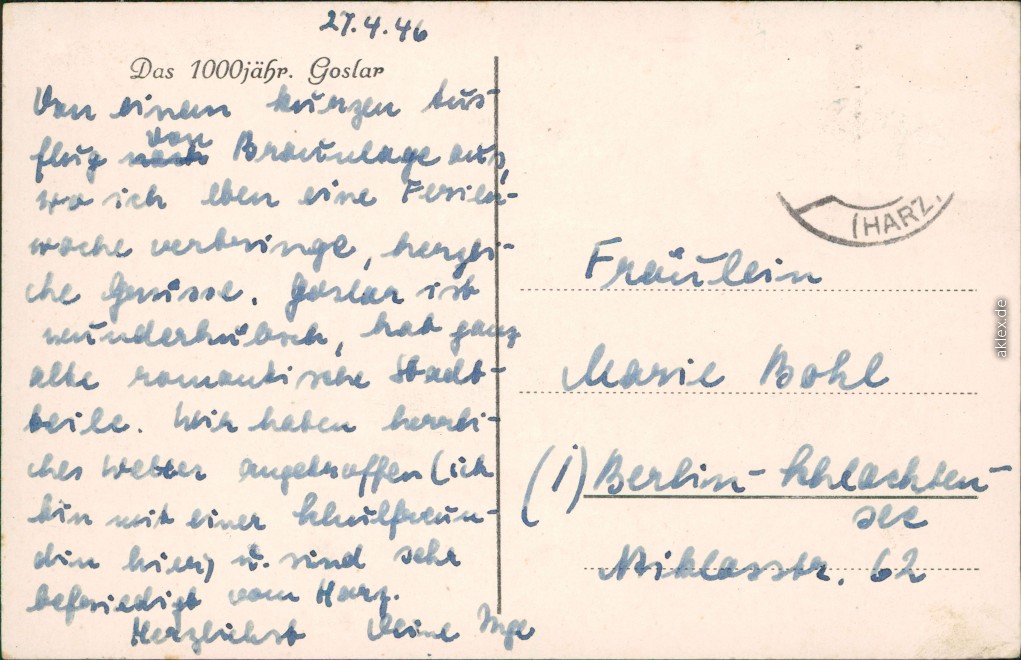 27.4.46
Das 1000jähr. Goslar
Von einem kurzen Aus-
flug von Braunlage aus,
wo ich eben eine Ferien-
woche verbringe, herzli-
che Grüsse. Goslar ist
wunderhübsch, hat ganz
alte romantische Stadt-
teile. Wir haben herrli-
ches Wetter angetroffen (ich
bin mit einer Schulfreun-
din hier) u. sind sehr
befriedigt vom Harz.
Herzlichst Deine Inge
(HARZ)
Fräulein
Marie Bohl
(1) Berlin-Schlachten-
see
Niklasstr. 62
aklex.de